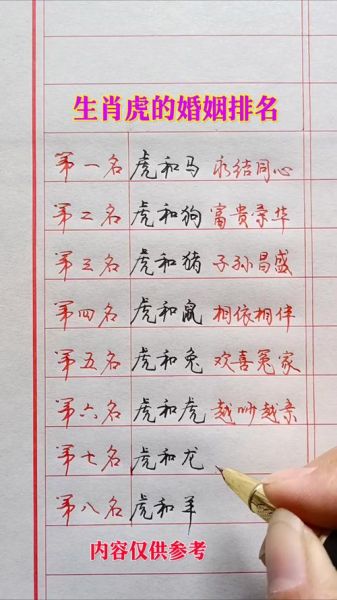 生肖虎的婚姻排名
第一名 虎和马 永结同心
第二名 虎和狗 富贵荣华
第三名 虎和猪 子孙昌盛
第四名 虎和鼠 相依相伴
第五名 虎和兔 欢喜冤家
第六名 虎和虎 越吵越亲
第七名 虎和龙
第八名 虎和羊
内容仅供参考